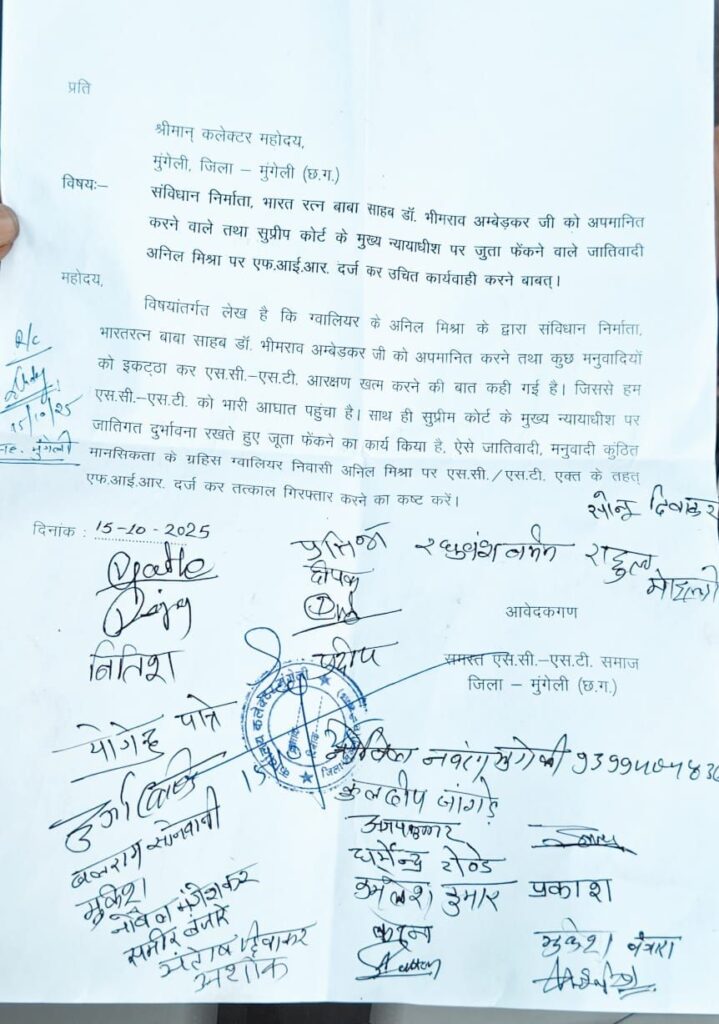 प्रति
श्रीमान् कलेक्टर महोदय,
मुंगेली, जिला – मुंगेली (छ.ग.)
विषयः–
संविधान निर्माता, भारत रत्न बाबा साहब डॉ. भीमराव अम्बेड़कर जी को अपमानित
करने वाले तथा सुप्रीप कोर्ट के मुख्य न्यायाधीश पर जुता फेंकने वाले जातिवादी
अनिल मिश्रा पर एफ.आई.आर. दर्ज कर उचित कार्यवाही करने बाबत्।
महोदय,
विषयांतर्गत लेख है कि ग्वालियर के अनिल मिश्रा के द्वारा संविधान निर्माता,
भारतरत्न बाबा साहब डॉ. भीमराव अम्बेडकर जी को अपमानित करने तथा कुछ मनुवादियों
को इकट्ठा कर एस.सी.–एस.टी. आरक्षण खत्म करने की बात कही गई है। जिससे हम
एस.सी.–एस.टी. को भारी आघात पहुंचा है। साथ ही सुप्रीम कोर्ट के मुख्य न्यायाधीश पर
जातिगत दुर्भावना रखते हुए जूता फेंकने का कार्य किया है. ऐसे जातिवादी, मनुवादी कुंठित
मानसिकता के ग्रहिस ग्वालियर निवासी अनिल मिश्रा पर एस.सी./एस.टी. एक्त के तहत्
एफ.आई.आर. दर्ज कर तत्काल गिरफ्तार करने का कष्ट करें।
R/c
15/10/25
मुंगेली
सोनू दिवाकर
दिनांक : 15-10-2025
रघुवंश बर्मन राहुल
दीपक
आवेदकगण
नितिश
प्रदीप
समस्त एस.सी.–एस.टी. समाज
जिला – मुंगेली (छ.ग.)
योगेन्द्र पात्रे
कुलदीप जांगड़े
बलराम सोनवानी
अजय कुमार
धर्मेन्द्र
मुकेश
कमलेश कुमार प्रकाश
समीर बंजारे
संतोष दिवाकर
मुकेश बंजारा
अशोक